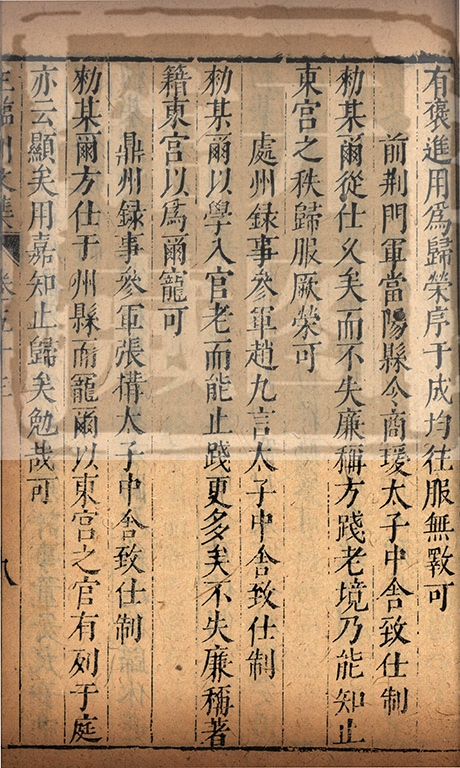 有褒進用爲歸榮序于成均往服無斁可
前荆門軍當陽縣令商瑗太子中舍致仕制
勑某爾從仕久矣而不失廉稱方踐老境乃能知止
東宫之秩歸服厥榮可
處州録事參軍趙九言太子中舍致仕制
勑某爾以學入官老而能止踐更多矣不失廉稱著
籍東宫以爲爾寵可
鼎州録事參軍張構太子中舍致仕制
勑某爾方仕于州縣而寵爾以東宫之官有列于庭
亦云顯矣用嘉知止歸矣勉哉可
王臨川文集 卷五十三 八